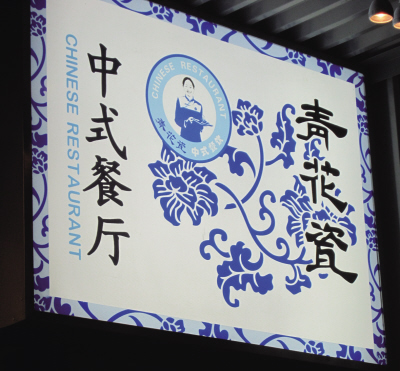 青花瓷
中式餐厅
CHINESE RESTAURANT
CHINESE RESTAURANT
青花瓷 中式餐厅